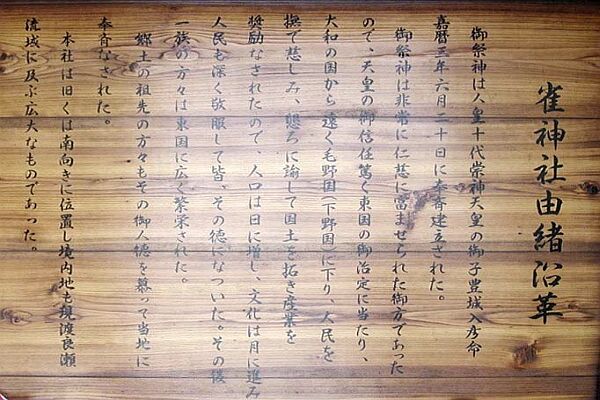 雀神社由緒沿革
御祭神は人皇十代崇神天皇の御子豊城入彦命
嘉暦三年六月二十日に奉斉建立された。
御祭神は非常に仁慈に富ませられた御方であった
ので、天皇の御信任篤く東国の御治定に当たり、
大和の国から遠く毛野国(下野国)に下り、人民を
撫で慈しみ、懇ろに諭して国土を拓き産業を
奨励なされたので、人口は日に増し、文化は月に進み
人民も深く敬服して皆、その徳になついた。その後
一族の方々は東国に広く繁栄された。
郷土の祖先の方々もその御人徳を慕って当地に
奉斉なされた。
本社は旧くは南向きに位置し境内地も現渡良瀬
流域に及ぶ広大なものであった。